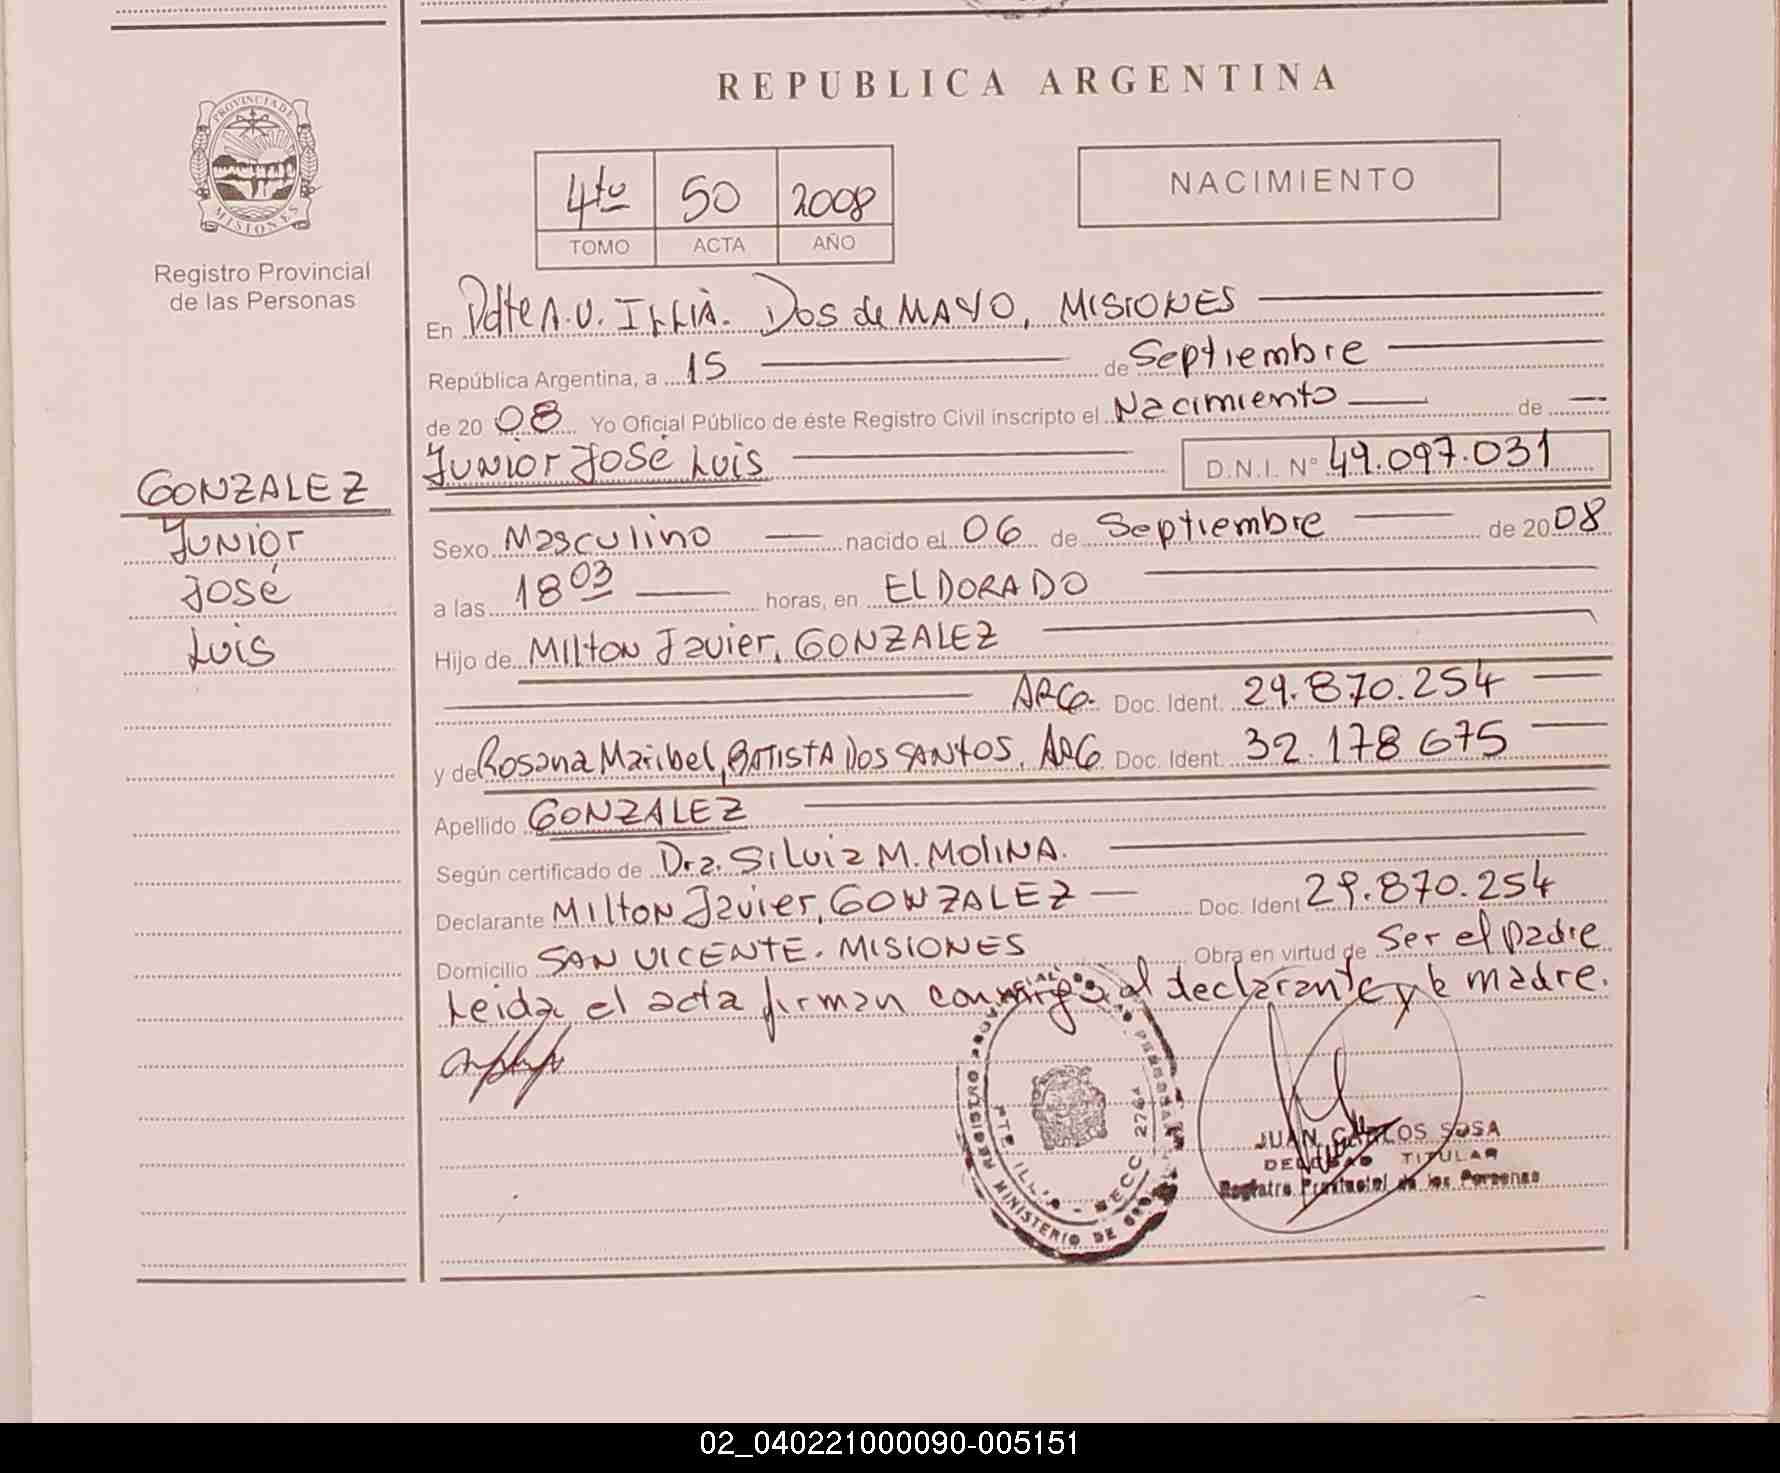 REPUBLICA ARGENTINA
PROVINCIA DE
MISIONES
Registro Provincial
de las Personas
4to 50 2008
TOMO ACTA AÑO
NACIMIENTO
En Pdte A.U. ILLIA. Dos de MAYO, MISIONES
República Argentina, a 15 de Septiembre
de 2008 Yo Oficial Público de éste Registro Civil inscripto el Nacimiento de
Junior José Luis D.N.I. N° 49.097.031
GONZALEZ
Junior
José
Luis
Sexo Masculino nacido el 06 de Septiembre de 2008
a las 18 03 horas, en ELDORADO
Hijo de Milton Javier, GONZALEZ
ARG. Doc. Ident. 29.870.254
y de Rosana Maribel, BATISTA DOS SANTOS, ARG Doc. Ident. 32.178675
Apellido GONZALEZ
Según certificado de Dra. Silvia M. MOLINA.
Declarante Milton Javier, GONZALEZ Doc. Ident 29.870.254
Domicilio SAN VICENTE. MISIONES Obra en virtud de Ser el padre
Leida el acta firman conmigo el declarante y la madre.
REGISTRO PERSONAS
MINISTERIO DE
JUAN CARLOS SOSA
DELEGAD TITULAR
Registro Provincial de las Personas
02_040221000090-005151